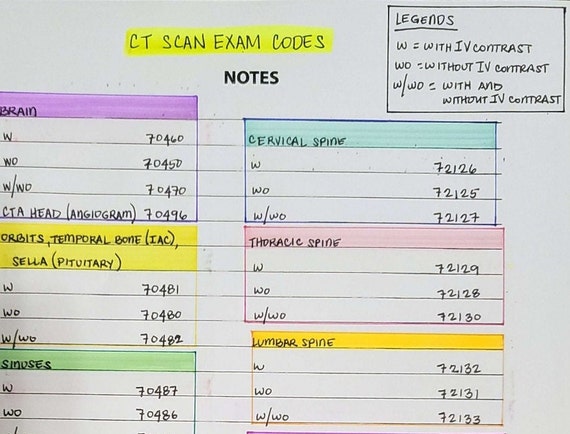 CT SCAN EXAM CODES
NOTES
LEGENDS
W = WITH IV CONTRAST
WO = WITHOUT IV CONTRAST
W/WO = WITH AND
WITHOUT IV CONTRAST
BRAIN
W 70460
WO 70450
W/WO 70470
CTA HEAD (ANGIOGRAM) 70496
ORBITS, TEMPORAL BONE (IAC),
SELLA (PITUITARY)
W 70481
WO 70480
W/WO 70482
SINUSES
W 70487
WO 70486
CERVICAL SPINE
W 72126
WO 72125
W/WO 72127
THORACIC SPINE
W 72129
WO 72128
W/WO 72130
LUMBAR SPINE
W 72132
WO 72131
W/WO 72133